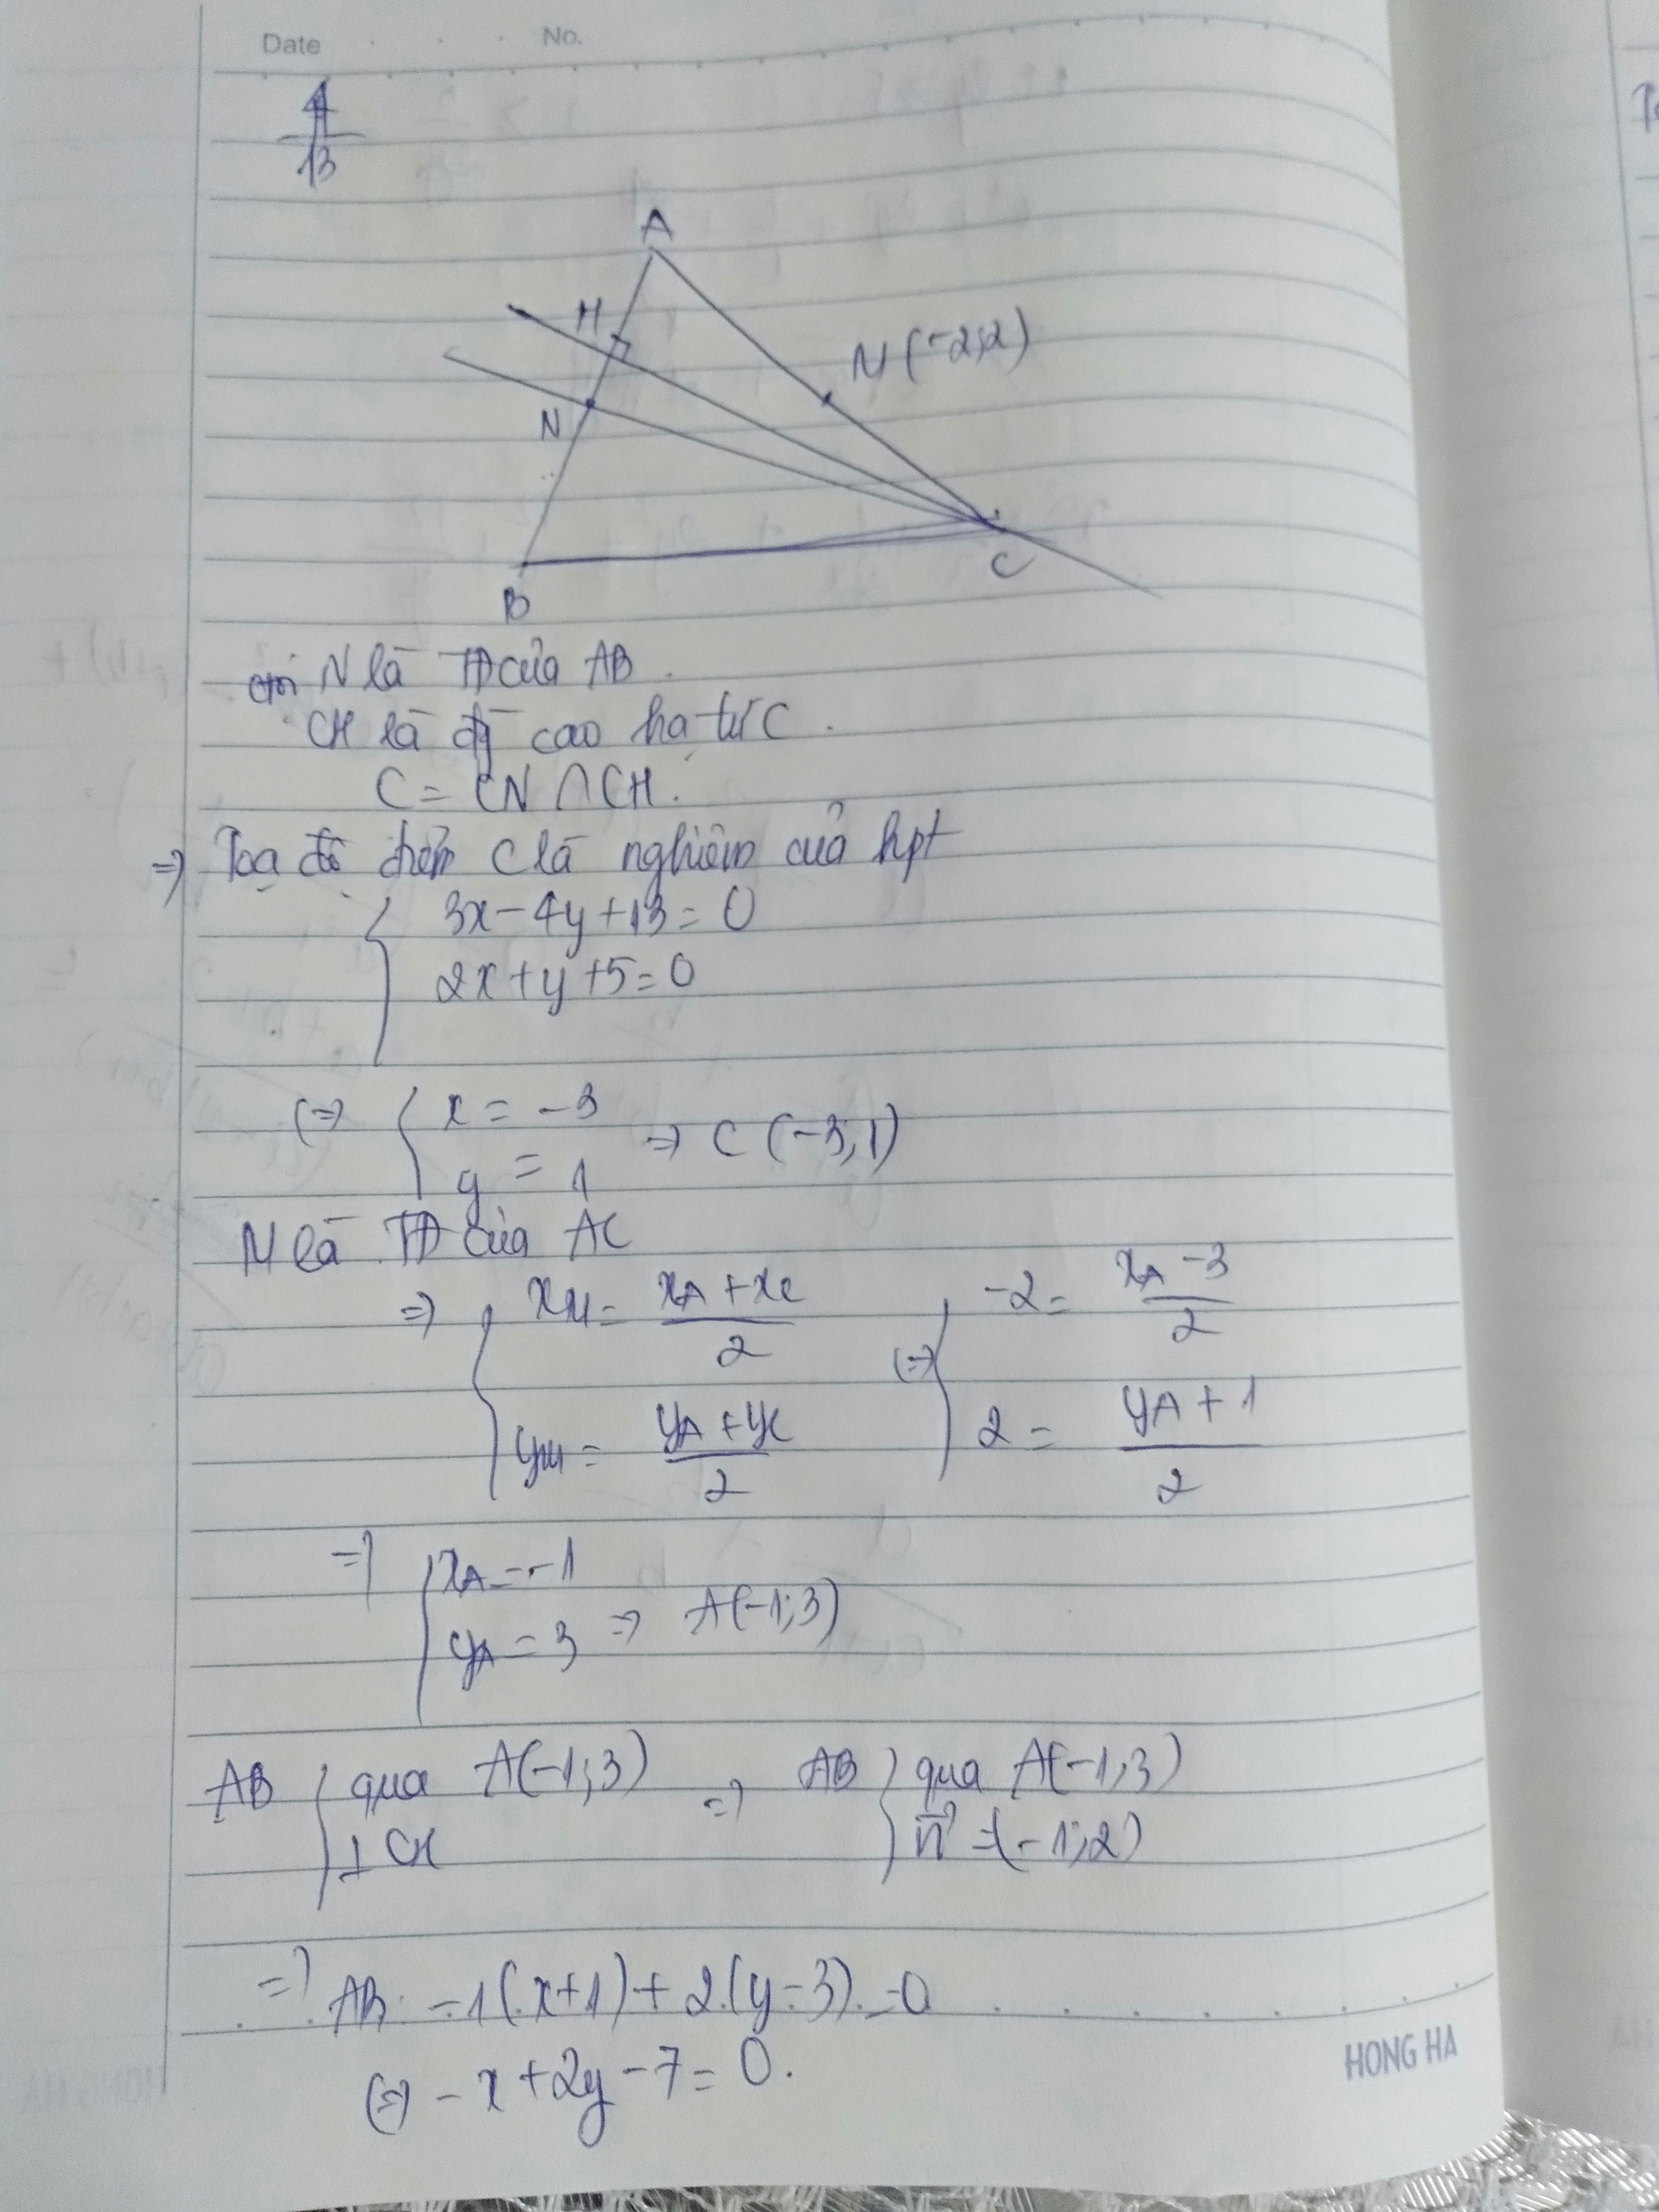 Date No.
4
13
A
H
M(-2;2)
N
C
B
N là TĐ của AB.
CH là đg cao hạ từ C.
C = CN ∩ CH.
=> Toạ độ điểm C là nghiệm của hpt
3x - 4y + 13 = 0
2x + y + 5 = 0
(=) x = -3
y = 1 => C (-3;1)
M là TĐ của AC
=> xM = (xA + xC)/2 (=) -2 = (xA - 3)/2
yM = (yA + yC)/2 2 = (yA + 1)/2
=> xA = -1
yA = 3 => A(-1;3)
AB qua A(-1;3) => AB qua A(-1;3)
⊥ CH n⃗ = (-1;2)
=> AB: -1(x+1) + 2.(y-3) = 0
(=) -x + 2y - 7 = 0.
HONG HA